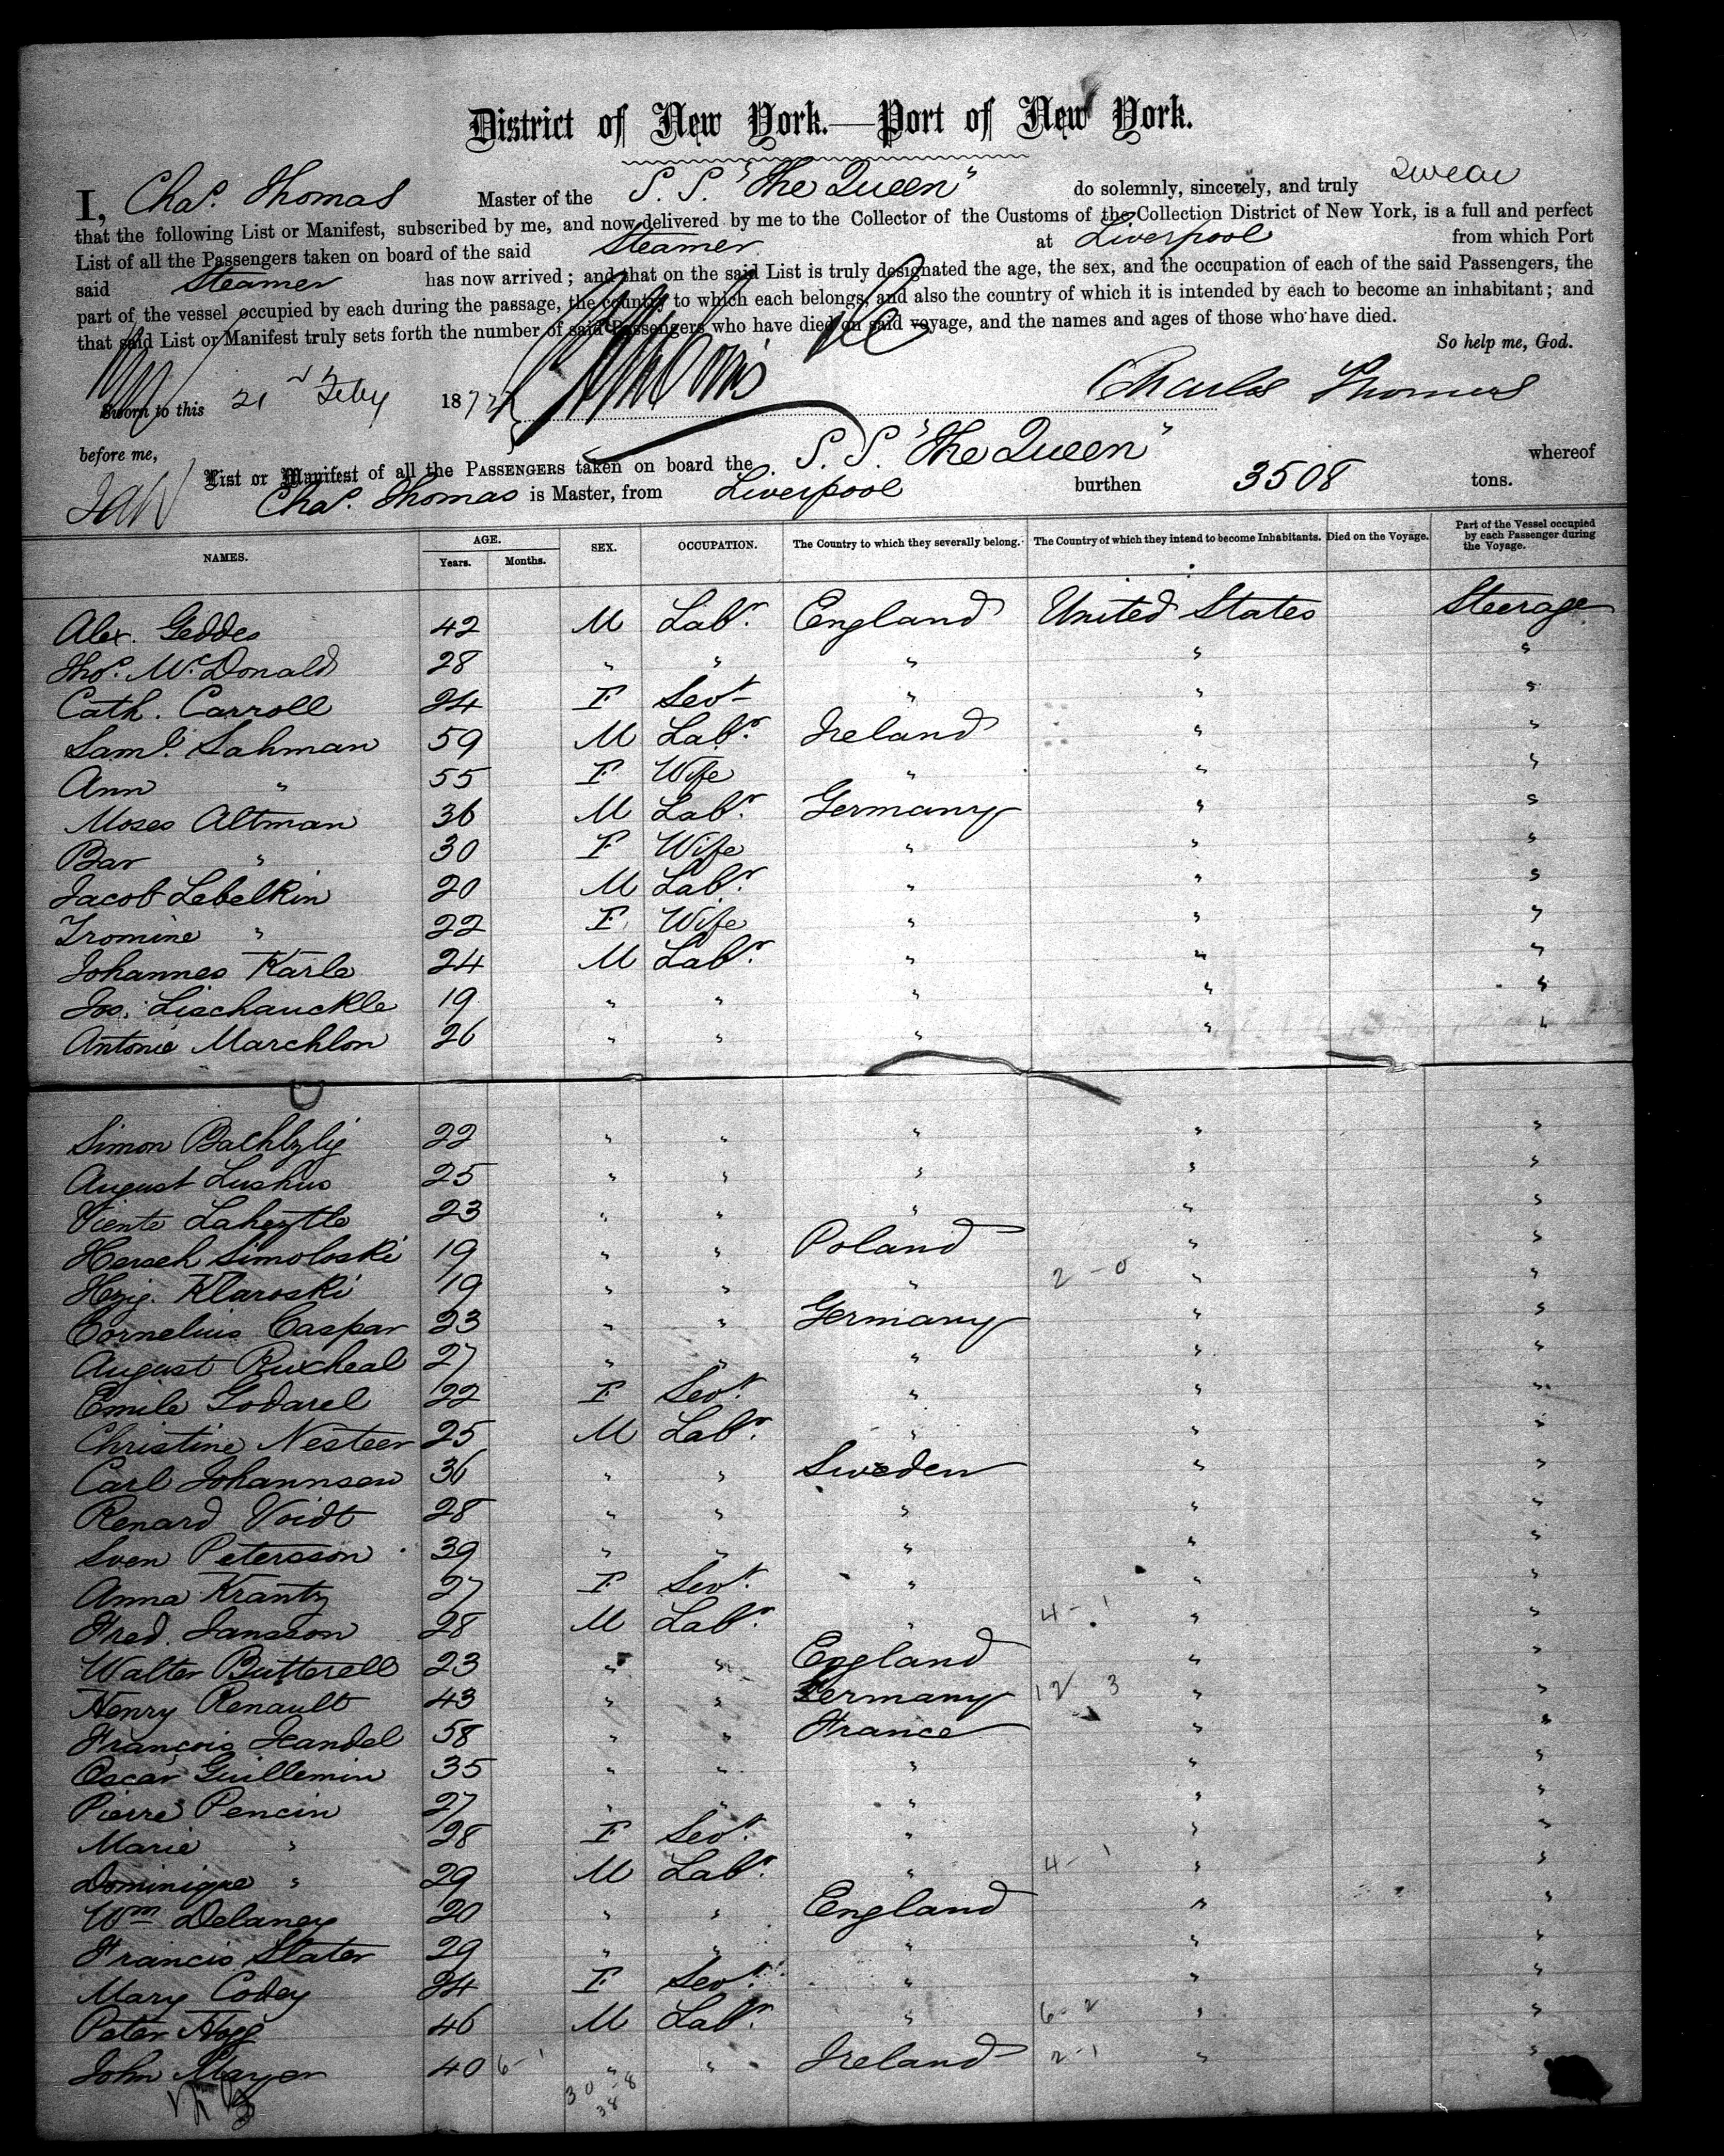 District of New York.—Port of New York.
I, Chas. Thomas Master of the S. S. "The Queen" do solemnly, sincerely, and truly swear
that the following List or Manifest, subscribed by me, and now delivered by me to the Collector of the Customs of the Collection District of New York, is a full and perfect
List of all the Passengers taken on board of the said Steamer at Liverpool from which Port
said Steamer has now arrived; and that on the said List is truly designated the age, the sex, and the occupation of each of the said Passengers, the
part of the vessel occupied by each during the passage, the country to which each belongs, and also the country of which it is intended by each to become an inhabitant; and
that said List or Manifest truly sets forth the number of said Passengers who have died on said voyage, and the names and ages of those who have died.
So help me, God.
Sworn to this 21 Feby 1872 Charles Thomas
before me,
List or Manifest of all the PASSENGERS taken on board the S. S. "The Queen" whereof
Chas. Thomas is Master, from Liverpool burthen 3508 tons.
NAMES. AGE. Years. Months. SEX. OCCUPATION. The Country to which they severally belong. The Country of which they intend to become Inhabitants. Died on the Voyage. Part of the Vessel occupied by each Passenger during the Voyage.
Alex. Geddes 42 M Labr. England United States Steerage
Thos. McDonald 28 " " " " "
Cath. Carroll 24 F Sevt " " "
Saml. Lahman 59 M Labr. Ireland " "
Ann " 55 F Wife " " "
Moses Altman 36 M Labr. Germany " "
Bar " 30 F Wife " " "
Jacob Lebelkin 20 M Labr. " " "
Fromine " 22 F Wife " " "
Johannes Karle 24 M Labr. " " "
Jos. Lischauckle 19 " " " " "
Antonie Marchlon 26 " " " " "
Simon 22 " " " " "
August Lushus 25 " " " " "
Viente 23 " " " " "
Hersch Simoloski 19 " " Poland " "
Klaroski 19 " " " 2-0 " "
Cornelius Caspar 23 " " Germany " "
August Ruxheal 27 " " " " "
Emile Godarel 22 F Sevt. " " "
Christine Nesteer 25 M Labr. " " "
Carl Johannsen 36 " " Sweden " "
Renard Voidt 28 " " " " "
Sven Petersson 39 " " " " "
Anna Krantz 27 F Sevt. " " "
Fred. Jansson 28 M Labr. " 4-1 " "
Walter Butterell 23 " " England " "
Henry Renault 43 " " Germany 12 3 " "
François Jeandel 58 " " France " "
Oscar Guillemin 35 " " " " "
Pierre Pencin 27 " " " " "
Marie " 28 F Sevt. " " "
Dominique " 29 M Labr. " 4-1 " "
Wm Delaney 20 " " England " "
Francis Slater 29 " " " " "
Mary Codey 24 F Sevt. " " "
Peter Hogg 46 M Labr. " 6-2 " "
John Mayer 40 6-1 " " Ireland 2-1 " "
30-8
38